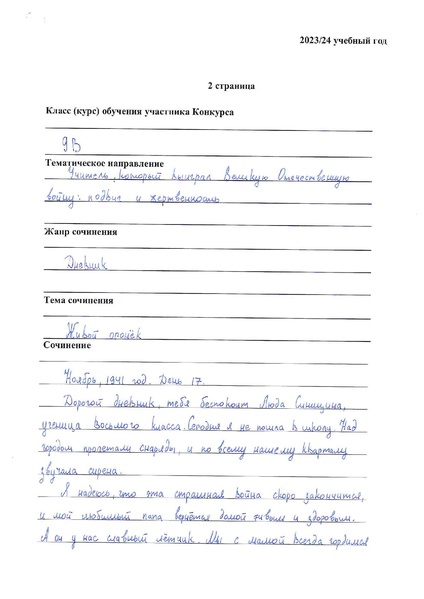 2023/24 учебный год
2 страница
Класс (курс) обучения участника Конкурса
9В
Тематическое направление
Учитель, который выиграл Великую Отечественную
войну: подвиг и жертвенность
Жанр сочинения
Дневник
Тема сочинения
Живой огонёк
Сочинение
Ноябрь, 1941 год. День 17.
Дорогой дневник, тебя беспокоит Люда Синицина,
ученица восьмого класса. Сегодня я не пошла в школу. Над
городом пролетали снаряды, и по всему нашему кварталу
звучала сирена.
Я надеюсь, что эта страшная война скоро закончится,
и мой любимый папа вернётся домой живым и здоровым.
А он у нас славный лётчик. Мы с мамой всегда гордимся